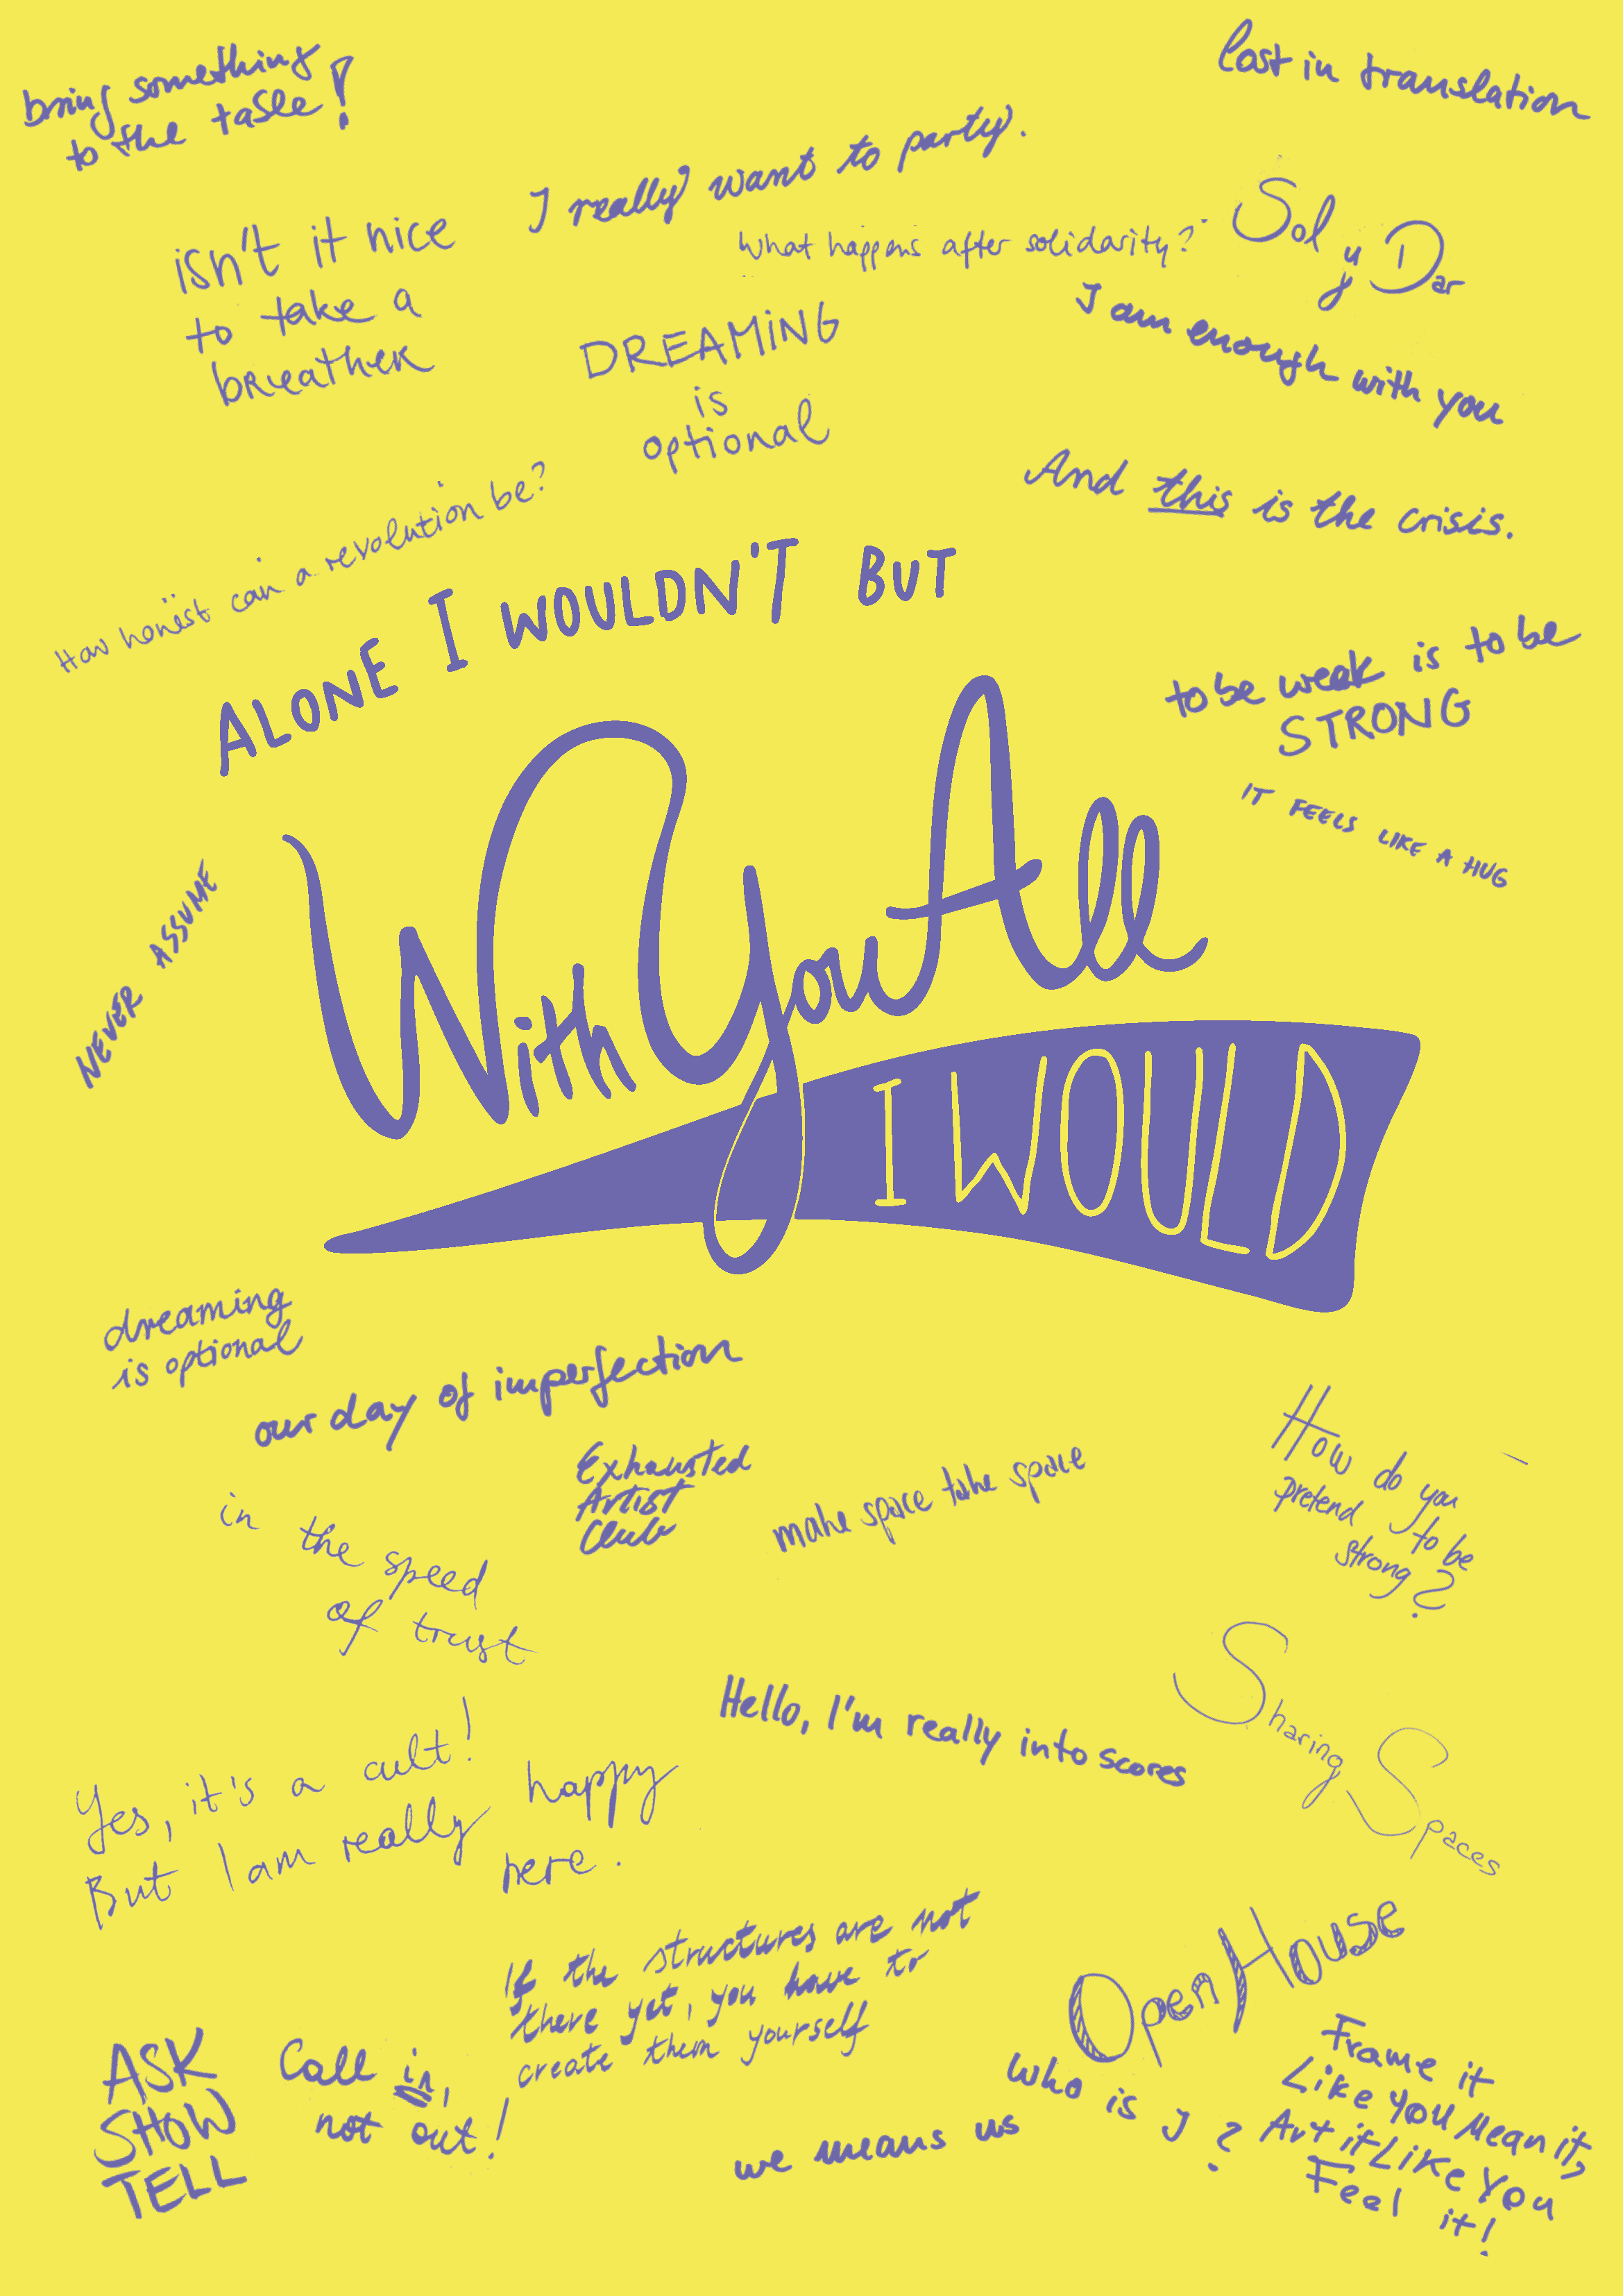 bring something
to the table!
lost in translation
I really want to party.
What happens after solidarity?
Sol y Dar
isn't it nice
to take a
breather
I am enough with you
DREAMING
is
optional
And this is the crisis.
How honest can a revolution be?
ALONE I WOULDN'T BUT
With You All
I WOULD
to be weak is to be
STRONG
IT FEELS LIKE A HUG
NEVER ASSUME
dreaming
is optional
our day of imperfection
Exhausted
Artist
Club
make space take space
How do you
pretend to be
strong?
in the speed
of trust
Sharing Spaces
Hello, I'm really into scores
Yes, it's a cult!
But I am really happy
here.
If the structures are not
there yet, you have to
create them yourself
Open House
ASK
SHOW
TELL
Call in,
not out!
we means us
Who is I?
Frame it
Like You Mean it,
Art it Like You
Feel it!